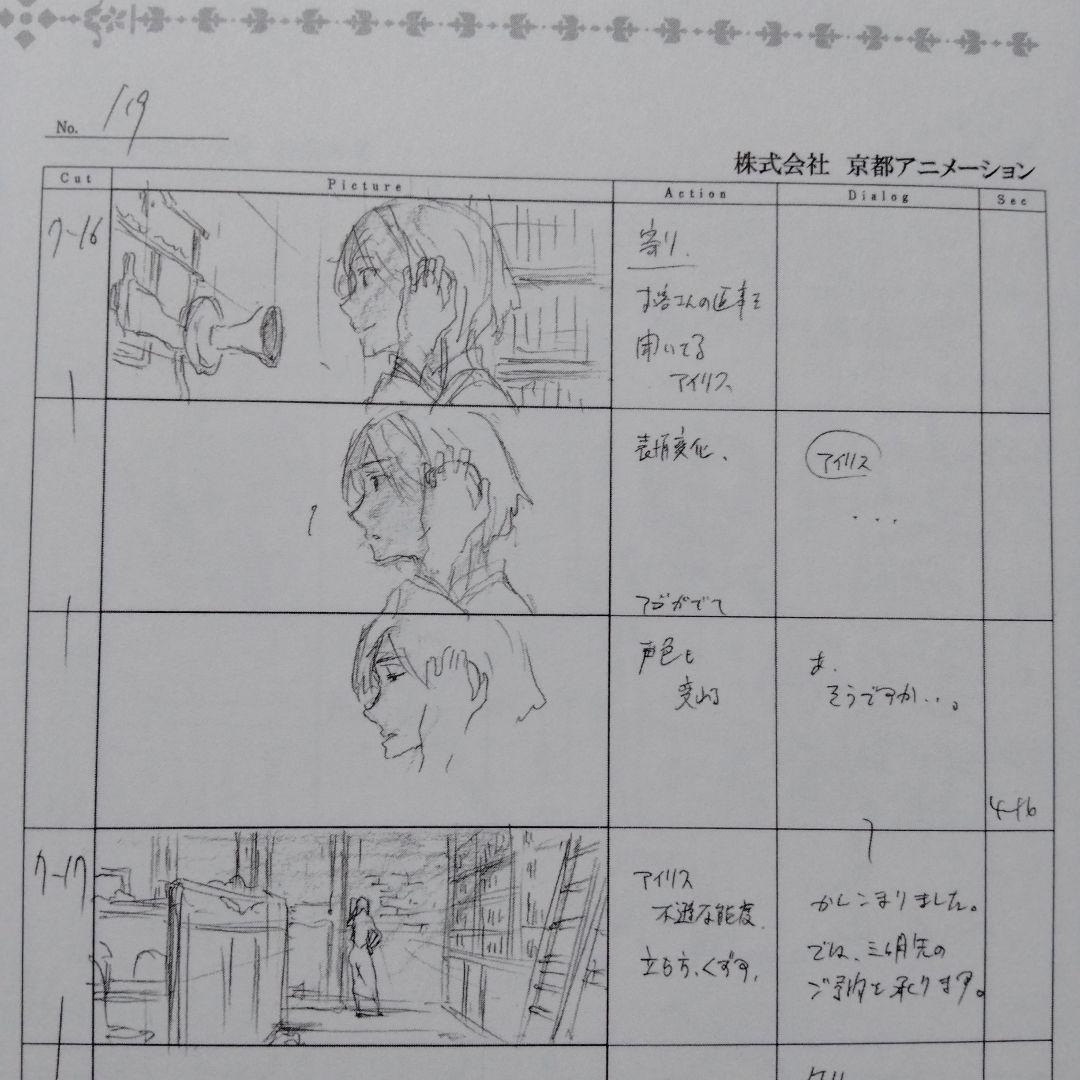 No. 119
株式会社 京都アニメーション
Cut Picture Action Dialog Sec
7-16
寄り.
お客さんの返事を
聞いてる
アイリス
表情変化、
アイリス
・・・
アゴがでて
声色も
変わる
あ、
そうですか・・。
4-16
7-17
アイリス
不遜な態度
立ち方、くずす、
かしこまりました。
では、三ヶ月先の
ご予約を承ります。